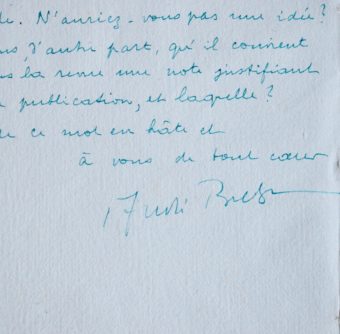 de. N'auriez-vous pas une idée?
us, d'autre part, qu'il convient
s la revue une note justifiant
publication, et laquelle?
ce mot en hâte et
à vous de tout cœur
André Breton